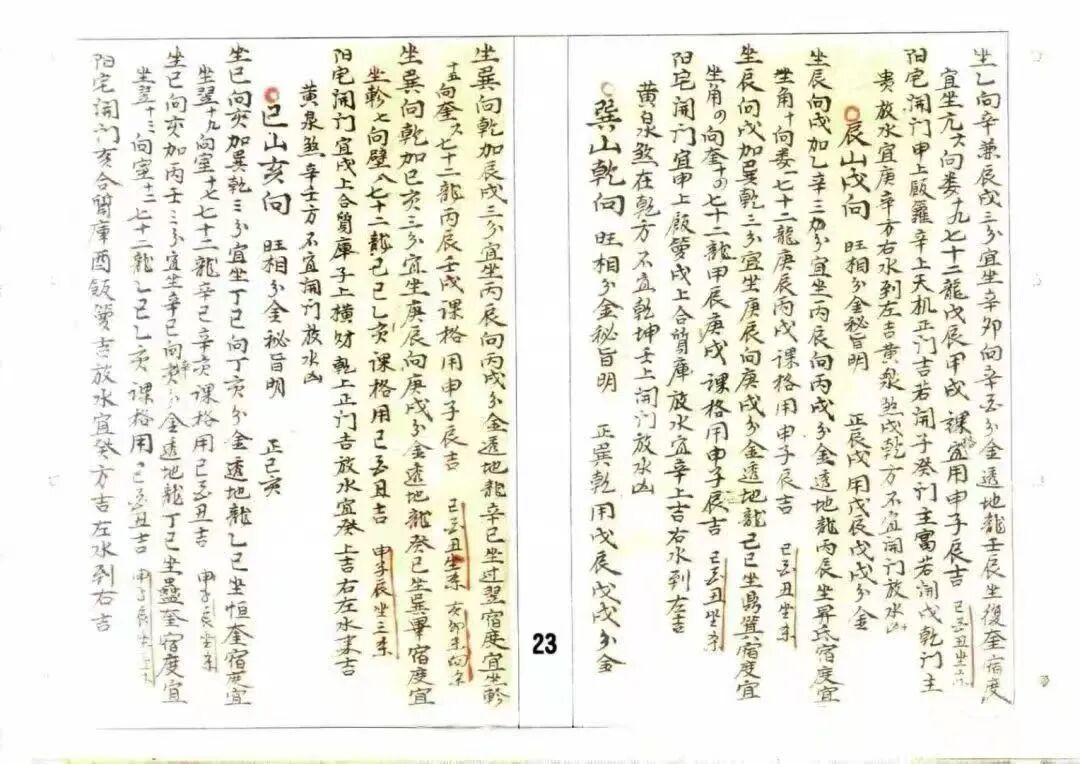 坐乙向辛兼辰戌三分宜坐辛卯向辛酉分金透地龍壬辰坐復奎宿度
宜坐亢六向婁十九七十二龍戊辰甲戌課宜用申子辰吉 巳酉丑坐
阳宅開门申上飯籮辛上天机正门吉若開子癸门主富若開戌乾门主
贵放水宜庚辛方右水到左吉黄泉煞戌乾方不宜開门放水凶
辰山戌向 旺相分金秘旨明 正辰戌用戊辰戊戌分金
坐辰向戌加乙辛三分宜坐丙辰向丙戌分金透地龍丙辰坐昇氐宿度宜
坐角十向婁一七十二龍庚辰丙戌課格用申子辰吉 巳酉丑坐杀
坐辰向戌加巽乾三分宜坐庚辰向庚戌分金透地龍己巳坐鼎箕宿度宜
坐角の向奎十の七十二龍甲辰庚戌課格用申子辰吉 巳酉丑坐杀
阳宅開门宜申上飯籮戌上合簡庫放水宜辛上吉右水到左吉
黄泉煞在乾方不宜乾坤壬上開门放水凶
巽山乾向 旺相分金秘旨明 正巽乾用戊辰戊戌分金
23
坐巽向乾加辰戌三分宜坐丙辰向丙戌分金透地龍辛巳坐过翌宿度宜坐軫
十五向奎六七十二龍丙辰壬戌課格用申子辰吉 巳酉丑坐杀 亥卯未向杀
坐巽向乾加巳亥三分宜坐庚辰向庚戌分金透地龍癸巳坐巽畢宿度宜
坐軫七向壁八七十二龍己巳乙亥課格用巳酉丑吉 申子辰坐三杀
阳宅開门宜戌上合簡庫子上横财乾上正门吉放水宜癸上吉右左水来吉
黄泉煞辛壬方不宜開门放水凶
巳山亥向 旺相分金秘旨明 正己亥
坐巳向亥加巽乾三分宜坐丁巳向丁亥分金透地龍乙巳坐恒奎宿度宜
坐翌十九向室十七七十二龍辛巳辛亥課格用巳酉丑吉 申子辰坐杀
坐巳向亥加丙壬三分宜坐辛巳向辛亥分金透地龍丁巳坐蠱奎宿度宜
坐翌十三向室十二七十二龍乙巳乙亥課格用巳酉丑吉 申子辰坐
阳宅開门亥合簡庫酉飯籮吉放水宜癸方吉左水到右吉